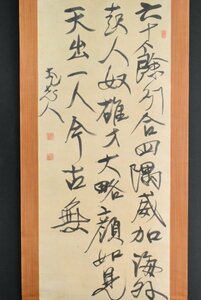 六十余州合四隅威加海外
人奴雄才大略顔如見
天出一人今古無